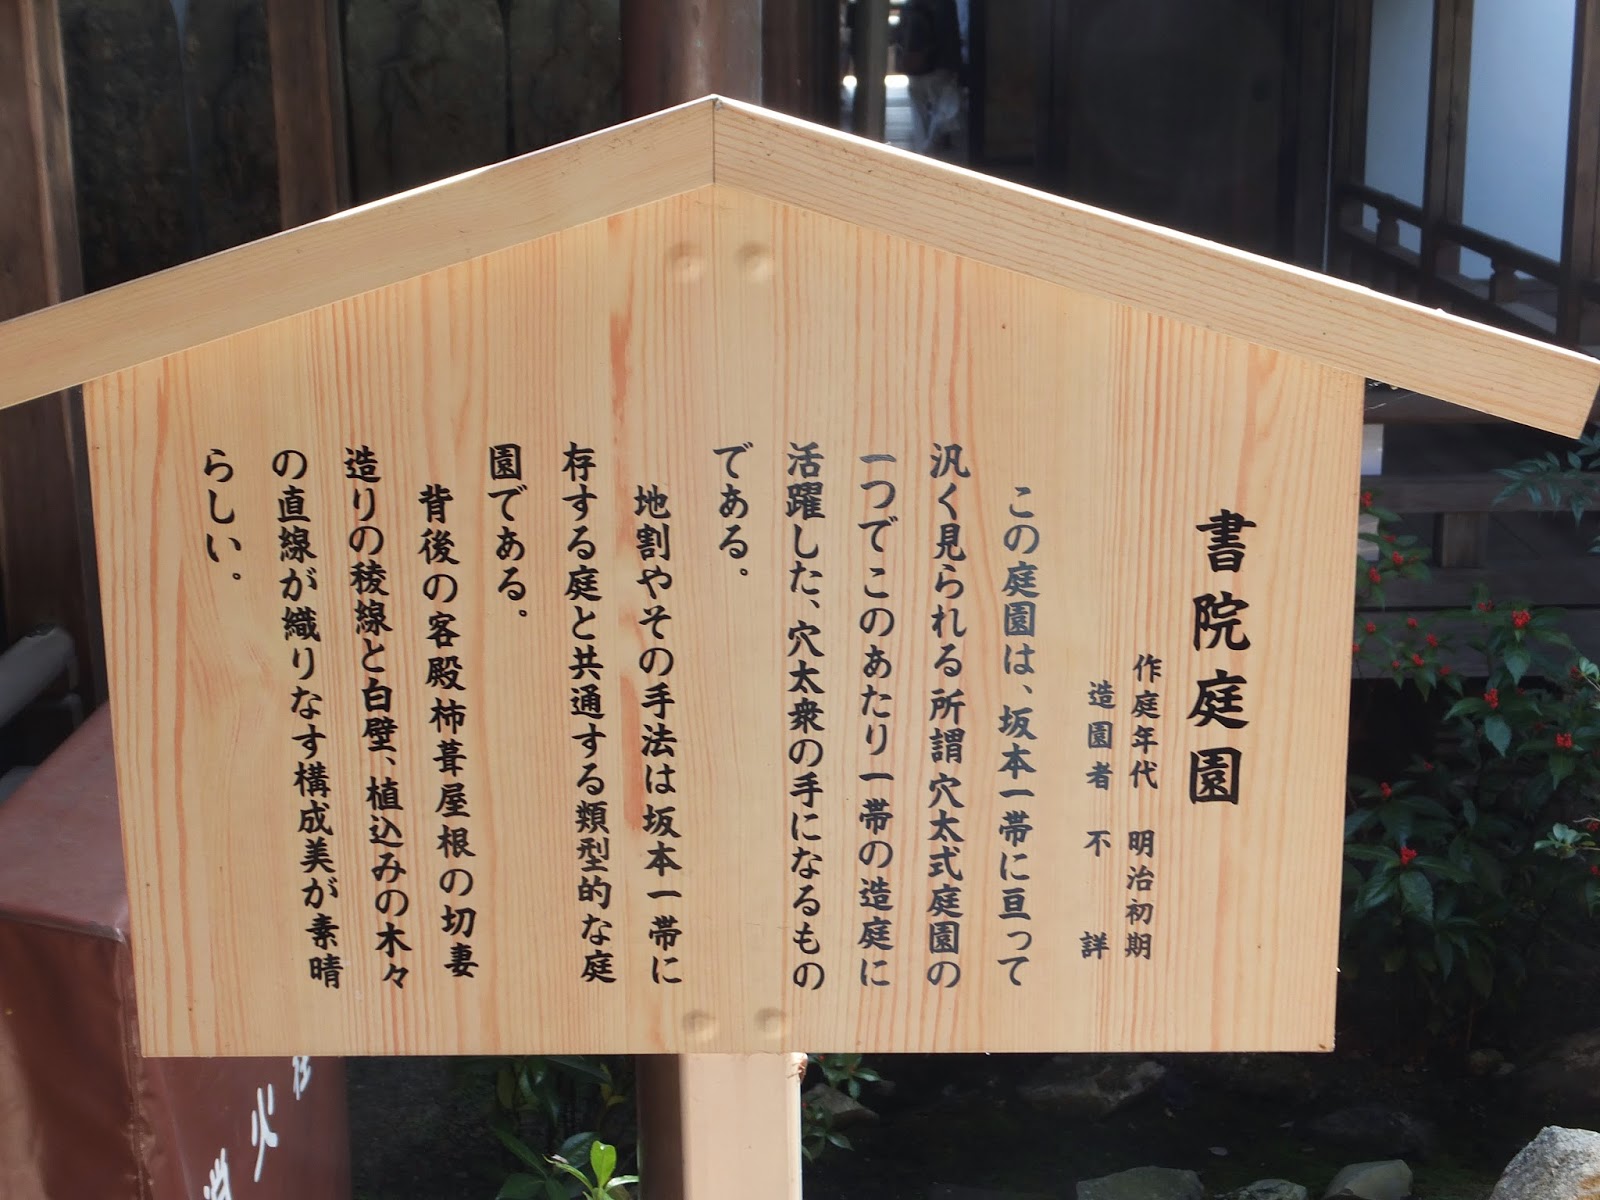 書院庭園
作庭年代 明治初期
造園者 不詳
この庭園は、坂本一帯に亘って
汎く見られる所謂穴太式庭園の
一つでこのあたり一帯の造庭に
活躍した、穴太衆の手になるもの
である。
地割やその手法は坂本一帯に
存する庭と共通する類型的な庭
園である。
背後の客殿柿葺屋根の切妻
造りの稜線と白壁、植込みの木々
の直線が織りなす構成美が素晴
らしい。
消火栓